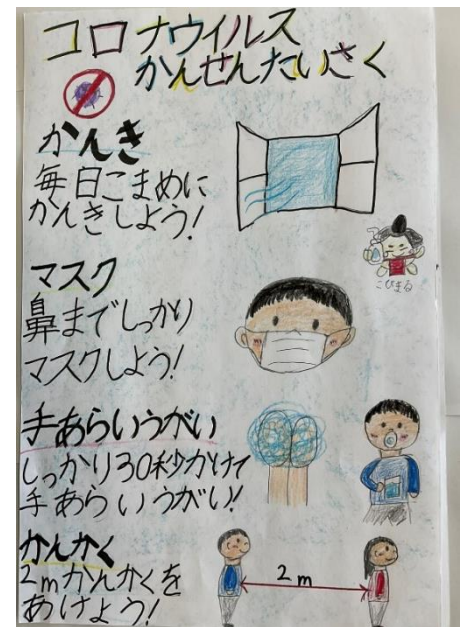 コロナウイルス
かんせんたいさく
かんき
毎日こまめに
かんきしよう!
こびまる
マスク
鼻までしっかり
マスクしよう!
手あらいうがい
しっかり30秒かけて
手あらいうがい!
かんかく
2mかんかくを
あけよう!
2m